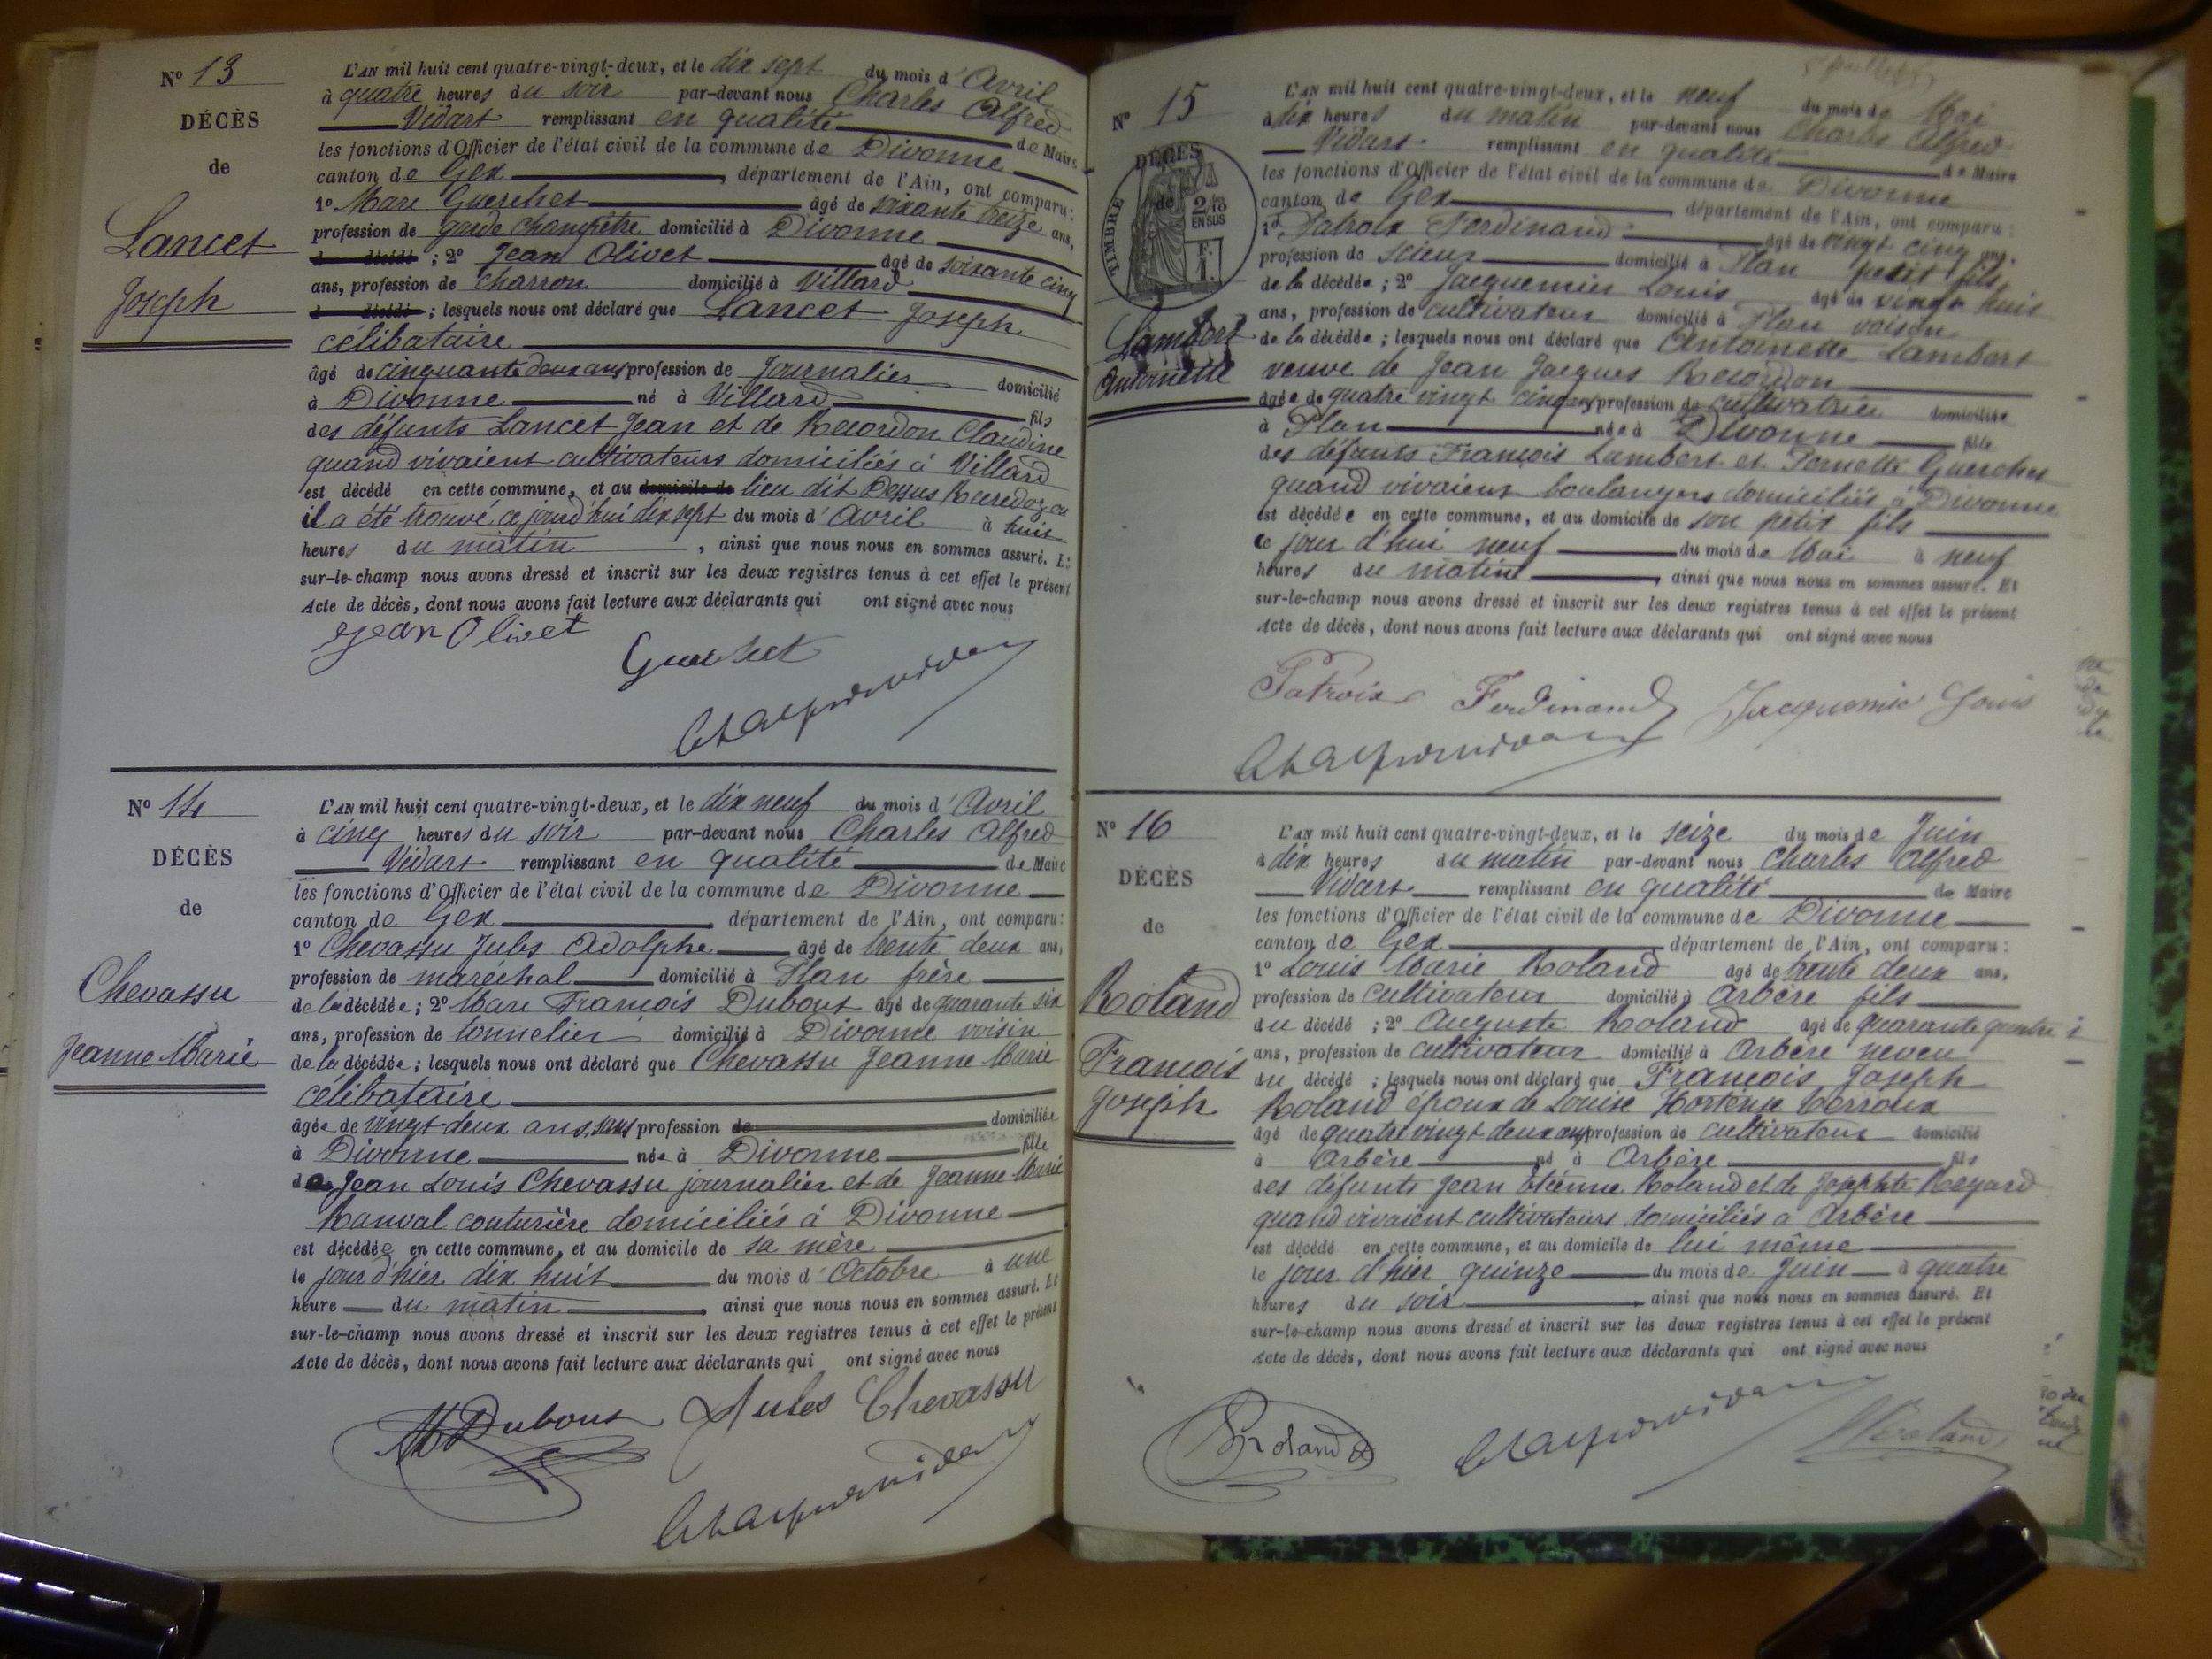 Nº 13
DÉCÈS
de
Lancet
Joseph
L'AN mil huit cent quatre-vingt-deux, et le dix sept du mois d'Avril
à quatre heures du soir par-devant nous Charles Alfred
Vidart remplissant en qualité de Maire
les fonctions d'Officier de l'état civil de la commune de Divonne
canton de Gex, département de l'Ain, ont comparu:
1º Marc Guerchet âgé de soixante treize ans,
profession de garde champêtre domicilié à Divonne
d décédé ; 2º Jean Olivet âgé de soixante cinq
ans, profession de charron domicilié à Villard
d décédé ; lesquels nous ont déclaré que Lancet Joseph
célibataire
âgé de cinquante deux ans profession de Journalier domicilié
à Divonne né à Villard fils
des défunts Lancet Jean et de Recordon Claudine
quand vivaient cultivateurs domiciliés à Villard
est décédé en cette commune, et au domicile de lieu dit Dessus ou
il a été trouvé, ce jourd'hui dix sept du mois d'Avril à huit
heures du matin, ainsi que nous nous en sommes assuré. Et
sur-le-champ nous avons dressé et inscrit sur les deux registres tenus à cet effet le présent
Acte de décès, dont nous avons fait lecture aux déclarants qui ont signé avec nous
Jean Olivet
Guerchet
Nº 14
DÉCÈS
de
Chevassu
Jeanne Marie
L'AN mil huit cent quatre-vingt-deux, et le dix neuf du mois d'Avril
à cinq heures du soir par-devant nous Charles Alfred
Vidart remplissant en qualité de Maire
les fonctions d'Officier de l'état civil de la commune de Divonne
canton de Gex département de l'Ain, ont comparu:
1º Chevassu Jules Adolphe âgé de trente deux ans,
profession de maréchal domicilié à Plan frère
de la décédée ; 2º Marc François Dubout âgé de quarante six
ans, profession de tonnelier domicilié à Divonne voisin
de la décédée ; lesquels nous ont déclaré que Chevassu Jeanne Marie
célibataire
âgée de vingt deux ans, sans profession de domiciliée
à Divonne née à Divonne fille
de Jean Louis Chevassu journalier et de Jeanne Marie
Ranval couturière domiciliés à Divonne
est décédée en cette commune, et au domicile de sa mère
le jour d'hier dix huit du mois d'Octobre à une
heure du matin, ainsi que nous nous en sommes assuré. Et
sur-le-champ nous avons dressé et inscrit sur les deux registres tenus à cet effet le présent
Acte de décès, dont nous avons fait lecture aux déclarants qui ont signé avec nous
M Dubout Jules Chevassu
Nº 15
DÉCÈS
de
TIMBRE
2/10
EN SUS
F.
1.
Lambert
Antoinette
L'AN mil huit cent quatre-vingt-deux, et le neuf du mois de Mai
à dix heures du matin par-devant nous Charles Alfred
Vidart remplissant en qualité de Maire
les fonctions d'Officier de l'état civil de la commune de Divonne
canton de Gex, département de l'Ain, ont comparu:
1º Patroix Ferdinand âgé de vingt cinq ans,
profession de scieur domicilié à Plan petit fils
de la décédée ; 2º Jacquemier Louis âgé de vingt huit
ans, profession de cultivateur domicilié à Plan voisin
de la décédée ; lesquels nous ont déclaré que Antoinette Lambert
veuve de Jean Jacques Recordon
âgée de quatre vingt cinq ans profession de cultivatrice domiciliée
à Plan née à Divonne fille
des défunts François Lambert et Pernette Guerchet
quand vivaient boulangers domiciliés à Divonne
est décédée en cette commune, et au domicile de son petit fils
ce jour d'hui neuf du mois de Mai à neuf
heures du matin, ainsi que nous nous en sommes assuré. Et
sur-le-champ nous avons dressé et inscrit sur les deux registres tenus à cet effet le présent
Acte de décès, dont nous avons fait lecture aux déclarants qui ont signé avec nous
Patroix Ferdinand Jacquemier Louis
Nº 16
DÉCÈS
de
Roland
François
Joseph
L'AN mil huit cent quatre-vingt-deux, et le seize du mois de Juin
à dix heures du matin par-devant nous Charles Alfred
Vidart remplissant en qualité de Maire
les fonctions d'Officier de l'état civil de la commune de Divonne
canton de Gex département de l'Ain, ont comparu:
1º Louis Marie Roland âgé de trente deux ans,
profession de cultivateur domicilié à Arbère fils
du décédé ; 2º Auguste Roland âgé de quarante quatre
ans, profession de cultivateur domicilié à Arbère neveu
du décédé ; lesquels nous ont déclaré que François Joseph
Roland époux de Louise Hortense
âgé de quatre vingt deux ans profession de cultivateur domicilié
à Arbère né à Arbère fils
des défunts Jean Etienne Roland et de Josephte Regard
quand vivaient cultivateurs domiciliés à Arbère
est décédé en cette commune, et au domicile de lui même
le jour d'hier quinze du mois de Juin à quatre
heures du soir, ainsi que nous nous en sommes assuré. Et
sur-le-champ nous avons dressé et inscrit sur les deux registres tenus à cet effet le présent
Acte de décès, dont nous avons fait lecture aux déclarants qui ont signé avec nous
Roland